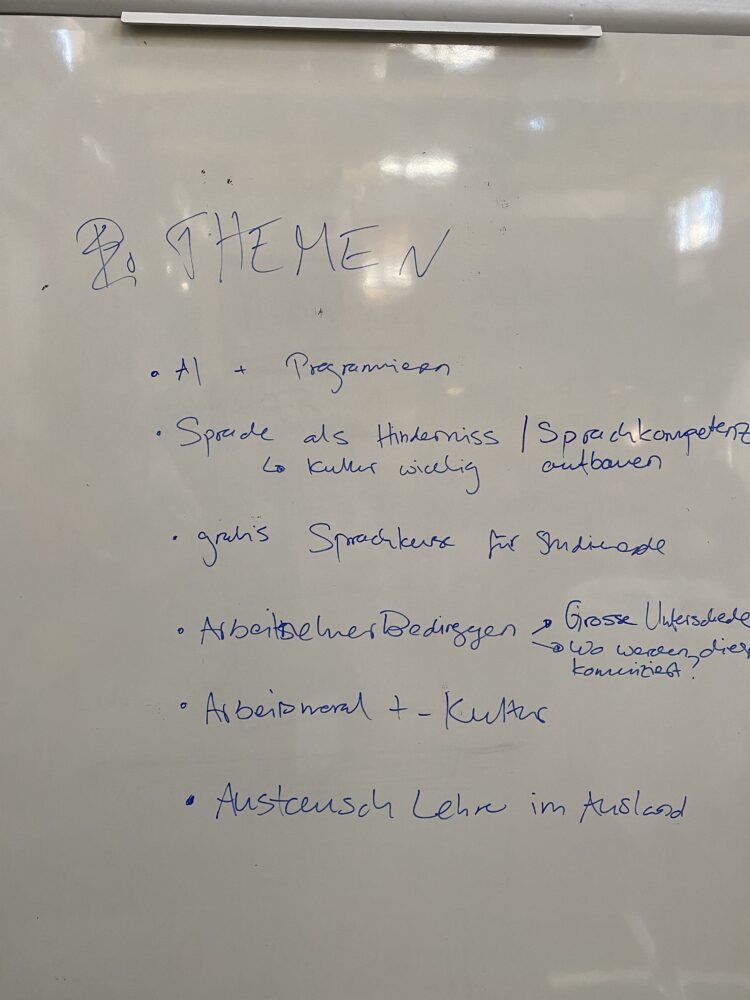 2. THEMEN
• AI + Programmieren
• Sprache als Hinderniss / Sprachkompetenz aufbauen
↳ Kultur wichtig
• gratis Sprachkurse für Studierende
• Arbeitnehmer Bedingungen → Grosse Unterschiede
→ Wo werden diese
kommuniziert?
• Arbeitsmoral + -Kultur
• Austausch Lehre im Ausland